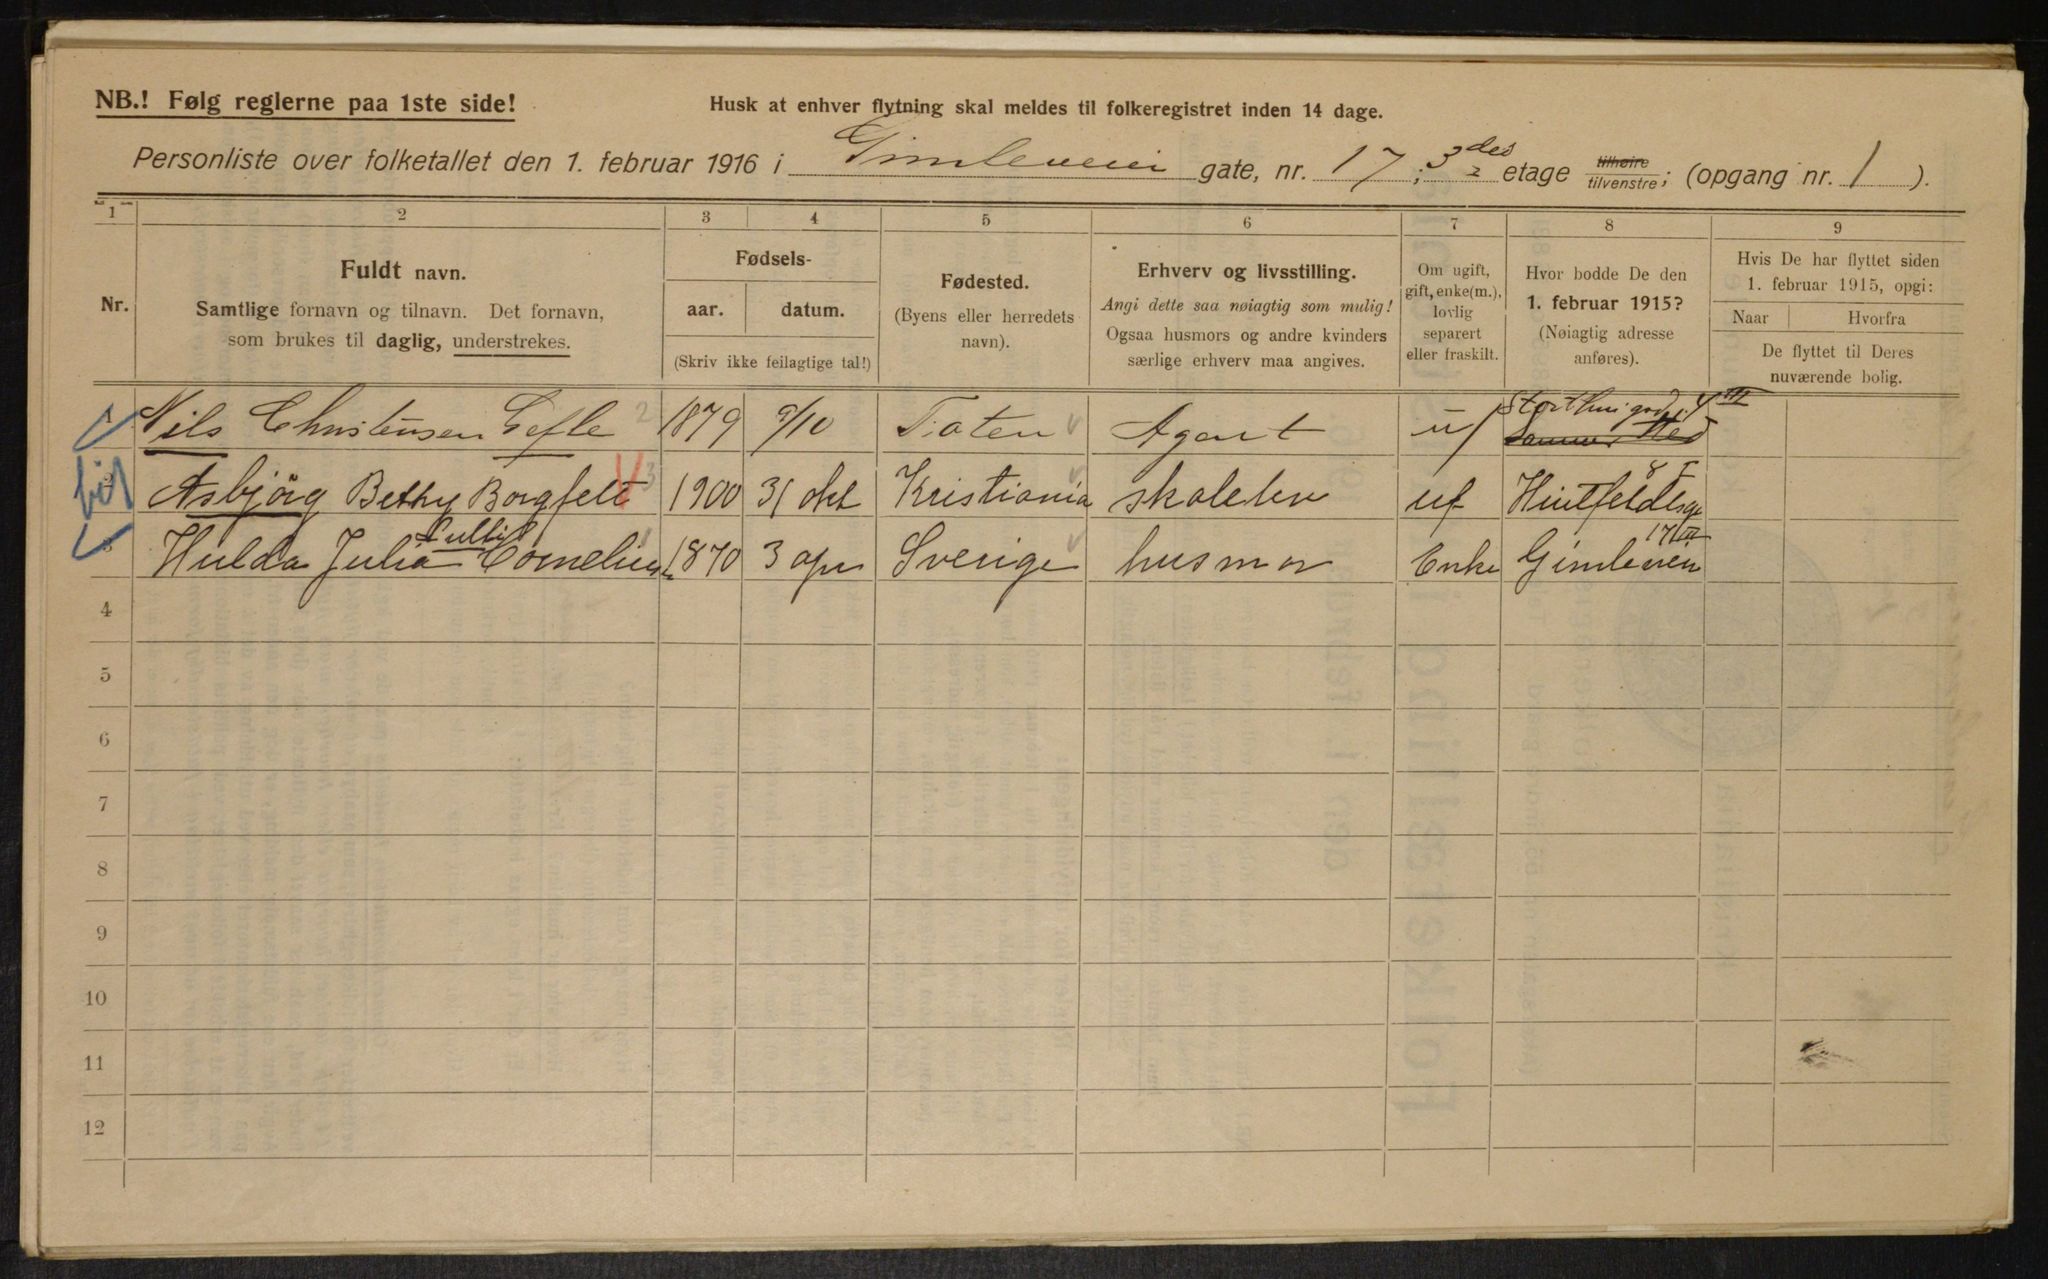 NB.! Følg reglerne paa 1ste side!
Husk at enhver flytning skal meldes til folkeregistret inden 14 dage.
Personliste over folketallet den 1. februar 1916 i Gimleveien gate, nr. 17; 3 des etage tilhøire tilvenstre; (opgang nr. 1).
1 2 3 4 5 6 7 8 9
Nr.
Fuldt navn.
Samtlige fornavn og tilnavn. Det fornavn,
som brukes til daglig, understrekes.
Fødsels-
aar. datum.
(Skriv ikke feilagtige tal!)
Fødested.
(Byens eller herredets
navn).
Erhverv og livsstilling.
Angi dette saa nøiagtig som mulig!
Ogsaa husmors og andre kvinders
særlige erhverv maa angives.
Om ugift,
gift, enke(m.),
lovlig
separert
eller fraskilt.
Hvor bodde De den
1. februar 1915?
(Nøiagtig adresse
anføres).
Hvis De har flyttet siden
1. februar 1915, opgi:
Naar Hvorfra
De flyttet til Deres
nuværende bolig.
Nils Christensen Gefle 2 1879 9/10 Toten Agent uf
Asbjörg Bethy Borgfelt 3 1900 31 okt Kristiania skoleelev uf Huitfeldtsgt 8 I
3 Hulda Julia Cornelius 1870 3 apr Sverige husmor Enke Gimleveien 17 III
4
5
6
7
8
9
10
11
12